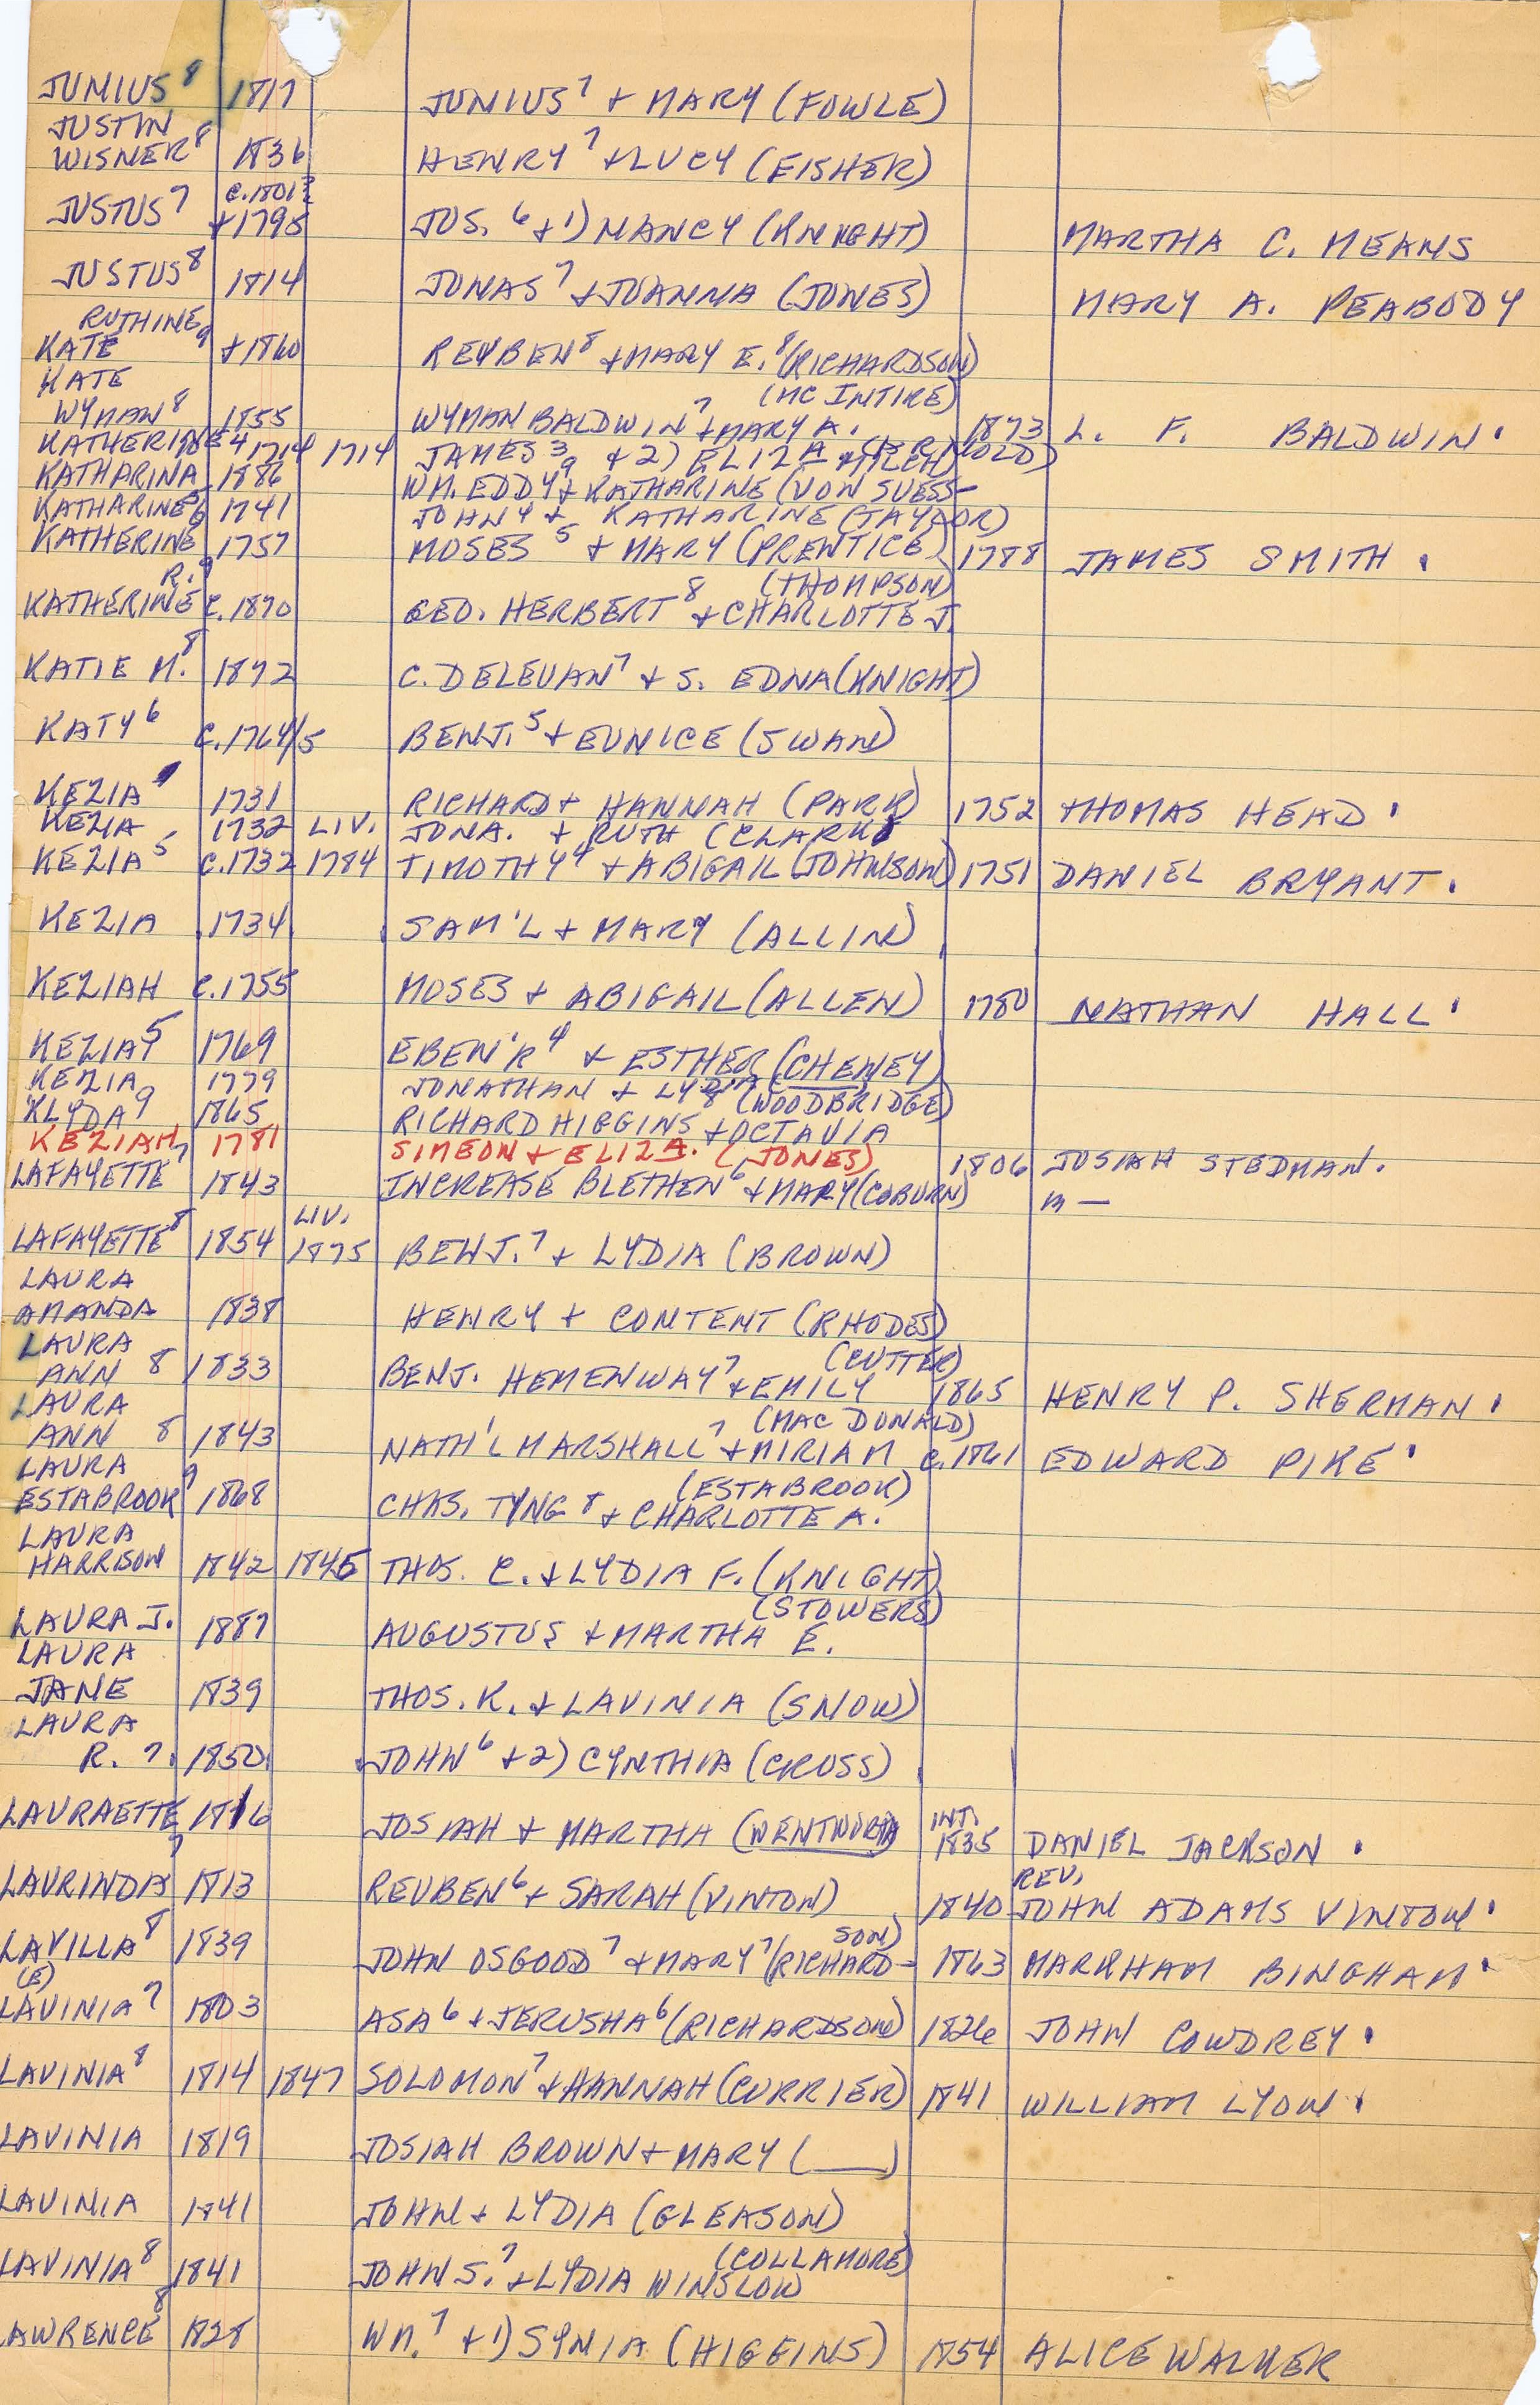 JUNIUS 8 1817 JUNIUS 7 + MARY (FOWLE)
JUSTIN
WISNER 8 1836 HENRY 7 + LUCY (FISHER)
C. 1801?
JUSTUS 7 +1795 JOS. 6 + 1) NANCY (KNIGHT) MARTHA C. MEANS
JUSTUS 8 1814 JONAS 7 + JOANNA (JONES) MARY A. PEABODY
RUTHINE
KATE 9 +1860 REUBEN 8 + MARY E. 8 (RICHARDSON)
KATE (MC INTIRE)
WYMAN 8 1855 WYMAN BALDWIN 7 + MARY A. 1873 L. F. BALDWIN.
KATHERINE 4 1714 1714 JAMES 3 + 2) ELIZA (ARNOLD)
KATHARINA 10 1886 WM. EDDY 9 + KATHARINE (VON SUESS-MILCH)
KATHARINE 5 1741 JOHN 4 + KATHARINE (TAYLOR)
KATHERINE 6 1757 MOSES 5 + MARY (PRENTICE) 1788 JAMES SMITH.
R. 9 (THOMPSON)
KATHERINE C. 1870 GEO. HERBERT 8 + CHARLOTTE J.
KATIE M. 8 1872 C. DELEVAN 7 + S. EDNA (KNIGHT)
KATY 6 C. 1764/5 BENJ. 5 + EUNICE (SWAN)
KEZIA 1731 RICHARD + HANNAH (PARK) 1752 THOMAS HEAD.
KEZIA 1732 LIV. JONA. + RUTH (CLARK)
KEZIA 5 C. 1732 1784 TIMOTHY 4 + ABIGAIL (JOHNSON) 1751 DANIEL BRYANT.
KEZIA 1734 SAM'L + MARY (ALLIN)
KEZIAH C. 1755 MOSES + ABIGAIL (ALLEN) 1780 NATHAN HALL.
KEZIA 5 1769 EBEN'R 4 + ESTHER (CHENEY)
KEZIA 1779 JONATHAN + LYDIA
KLYDA 9 1865 RICHARD HIGGINS 8 + OCTAVIA (WOODBRIDGE)
KEZIAH 1781 SIMEON + ELIZA. (JONES) 1806 JOSIAH STEDMAN.
LAFAYETTE 7 1843 INCREASE BLETHEN 6 + MARY (COBURN) M —
LIV.
LAFAYETTE 8 1854 1875 BENJ. 7 + LYDIA (BROWN)
LAURA
AMANDA 1838 HENRY + CONTENT (RHODES)
LAURA (CUTTER)
ANN 8 1833 BENJ. HEMENWAY 7 + EMILY 1865 HENRY P. SHERMAN.
LAURA (MAC DONALD)
ANN 8 1843 NATH'L MARSHALL 7 + MIRIAM C. 1861 EDWARD PIKE.
LAURA (ESTABROOK)
ESTABROOK 9 1868 CHAS. TYNG 8 + CHARLOTTE A.
LAURA
HARRISON 1842 1845 THOS. C. + LYDIA F. (KNIGHT)
(STOWERS)
LAURA J. 1887 AUGUSTUS + MARTHA E.
LAURA
JANE 1839 THOS. K. + LAVINIA (SNOW)
LAURA
R. 7. 1850. JOHN 6 + 2) CYNTHIA (CROSS)
LAURAETTE 1816 JOSIAH + MARTHA (WENTWORTH) INT. 1835 DANIEL JACKSON.
REV.
LAURINDA 7 1813 REUBEN 6 + SARAH (VINTON) 1840 JOHN ADAMS VINTON.
SON)
LAVILLA 8 1839 JOHN OSGOOD 7 + MARY 7 (RICHARD- 1863 MARKHAM BINGHAM.
(E)
LAVINIA 7 1803 ASA 6 + JERUSHA 6 (RICHARDSON) 1826 JOHN COWDREY.
LAVINIA 8 1814 1847 SOLOMON 7 + HANNAH (CURRIER) 1841 WILLIAM LYON.
LAVINIA 1819 JOSIAH BROWN + MARY (___)
LAVINIA 1841 JOHN + LYDIA (GLEASON)
(COLLAMORE)
LAVINIA 8 1841 JOHN S. 7 + LYDIA WINSLOW
AWRENCE 8 1828 WM. 7 + 1) SYNIA (HIGGINS) 1854 ALICE WALKER